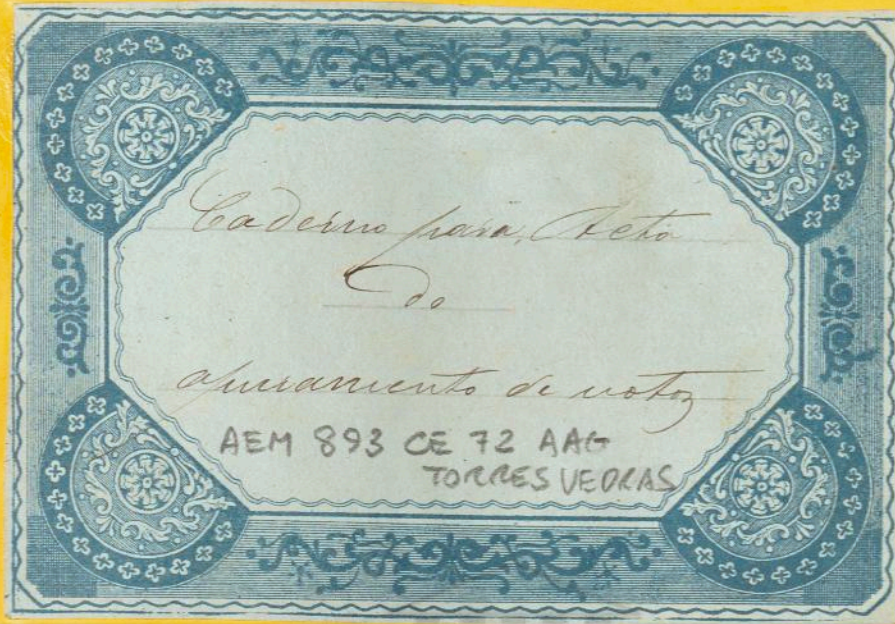 Caderno para Acta
do
apuramento de votos
AEM 893 CE 72 AAG
TORRES VEDRAS